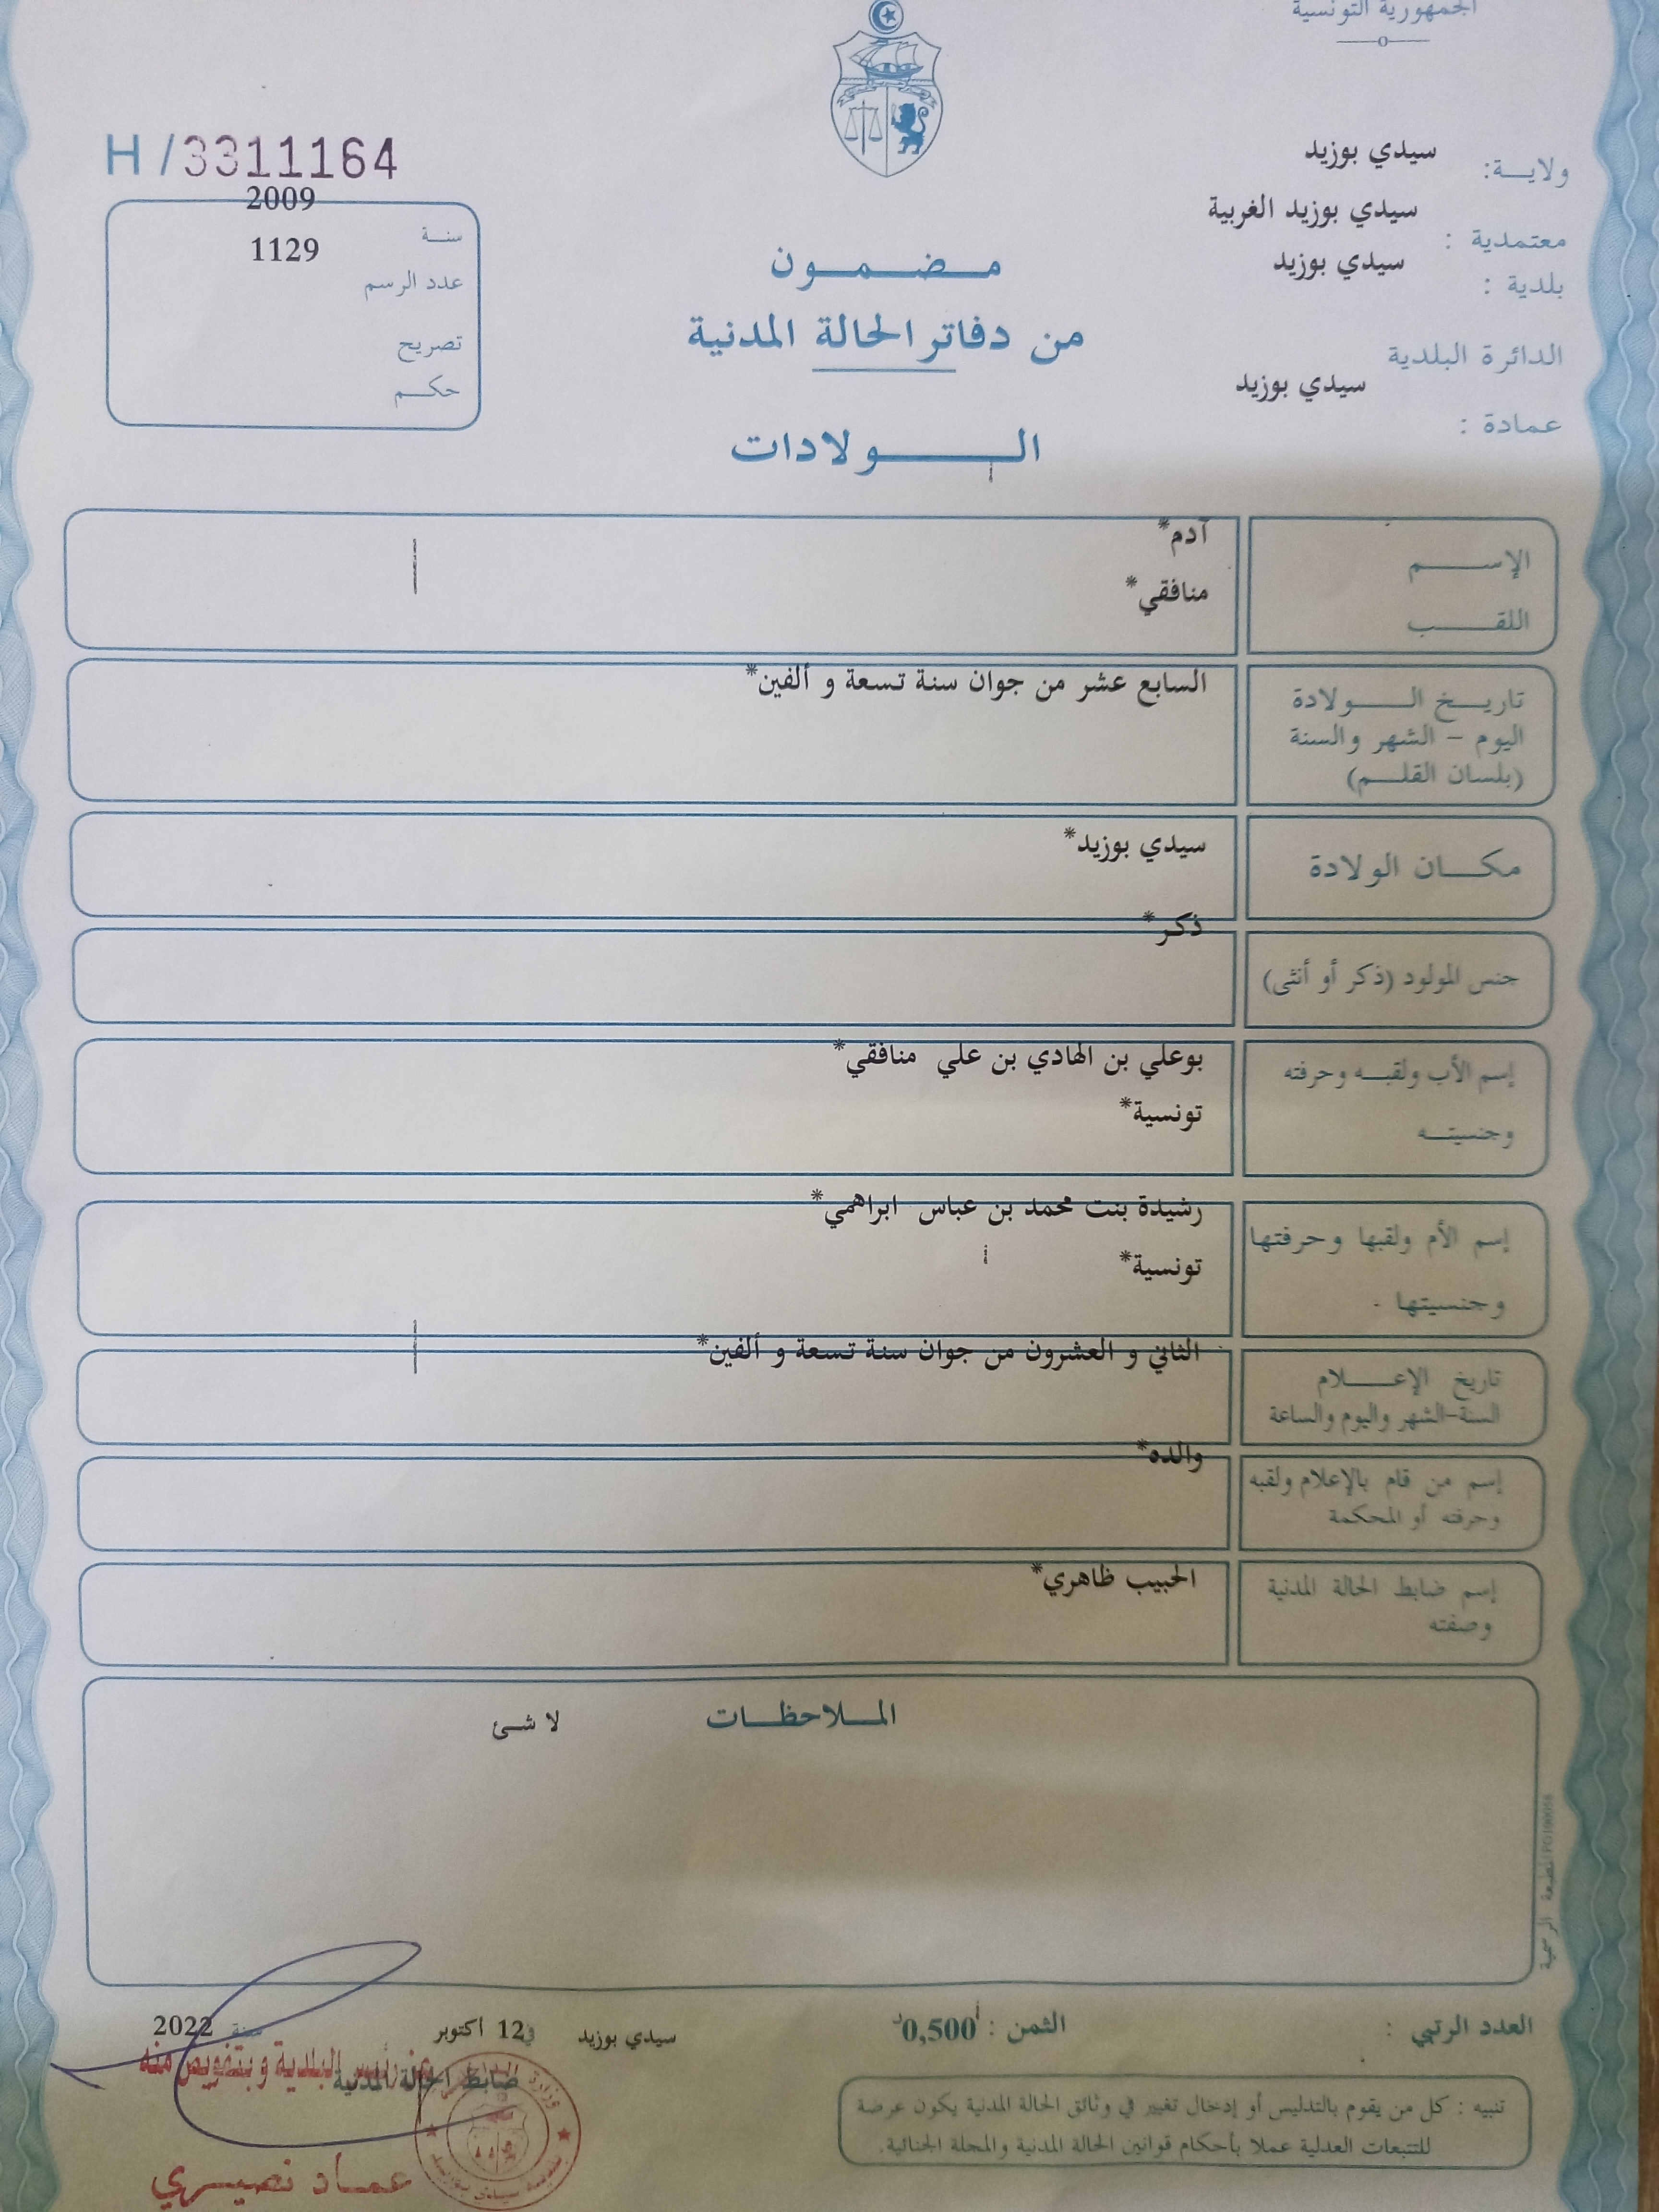 الجمهورية التونسية
H /3311164
ولايــة: سيدي بوزيد
معتمدية : سيدي بوزيد الغربية
بلدية : سيدي بوزيد
الدائرة البلدية
سيدي بوزيد
عمادة :
سنـة 2009
عدد الرسم 1129
تصريح
حكـم
مـضـمـون
من دفاتر الحالة المدنية
الـولادات
الإسـم آدم*
اللقـب منافقي*
تاريـخ الـولادة السابع عشر من جوان سنة تسعة و ألفين*
اليوم – الشهر والسنة
(بلسان القلـم)
مكـان الولادة سيدي بوزيد*
جنس المولود (ذكر أو أنثى) ذكر*
إسم الأب ولقبـه وحرفته بوعلي بن الهادي بن علي منافقي*
وجنسيتـه تونسية*
إسم الأم ولقبها وحرفتها رشيدة بنت محمد بن عباس ابراهمي*
وجنسيتها . تونسية*
تاريخ الإعـلام الثاني و العشرون من جوان سنة تسعة و ألفين*
السنة-الشهر واليوم والساعة
إسم من قام بالإعلام ولقبه والده*
وحرفته أو المحكمة
إسم ضابط الحالة المدنية الحبيب ظاهري*
وصفته
المـلاحظـات لا شئ
المطبعة الرسمية
العدد الرتبي :
الثمن : 0,500د
سيدي بوزيد في 12 اكتوبر سنة 2022
ضابط الحالة المدنية
عن رئيس البلدية و بتفويض منه
عماد نصيـري
تنبيه : كل من يقوم بالتدليس أو إدخال تغيير في وثائق الحالة المدنية يكون عرضة
للتتبعات العدلية عملا بأحكام قوانين الحالة المدنية والمجلة الجنائية.